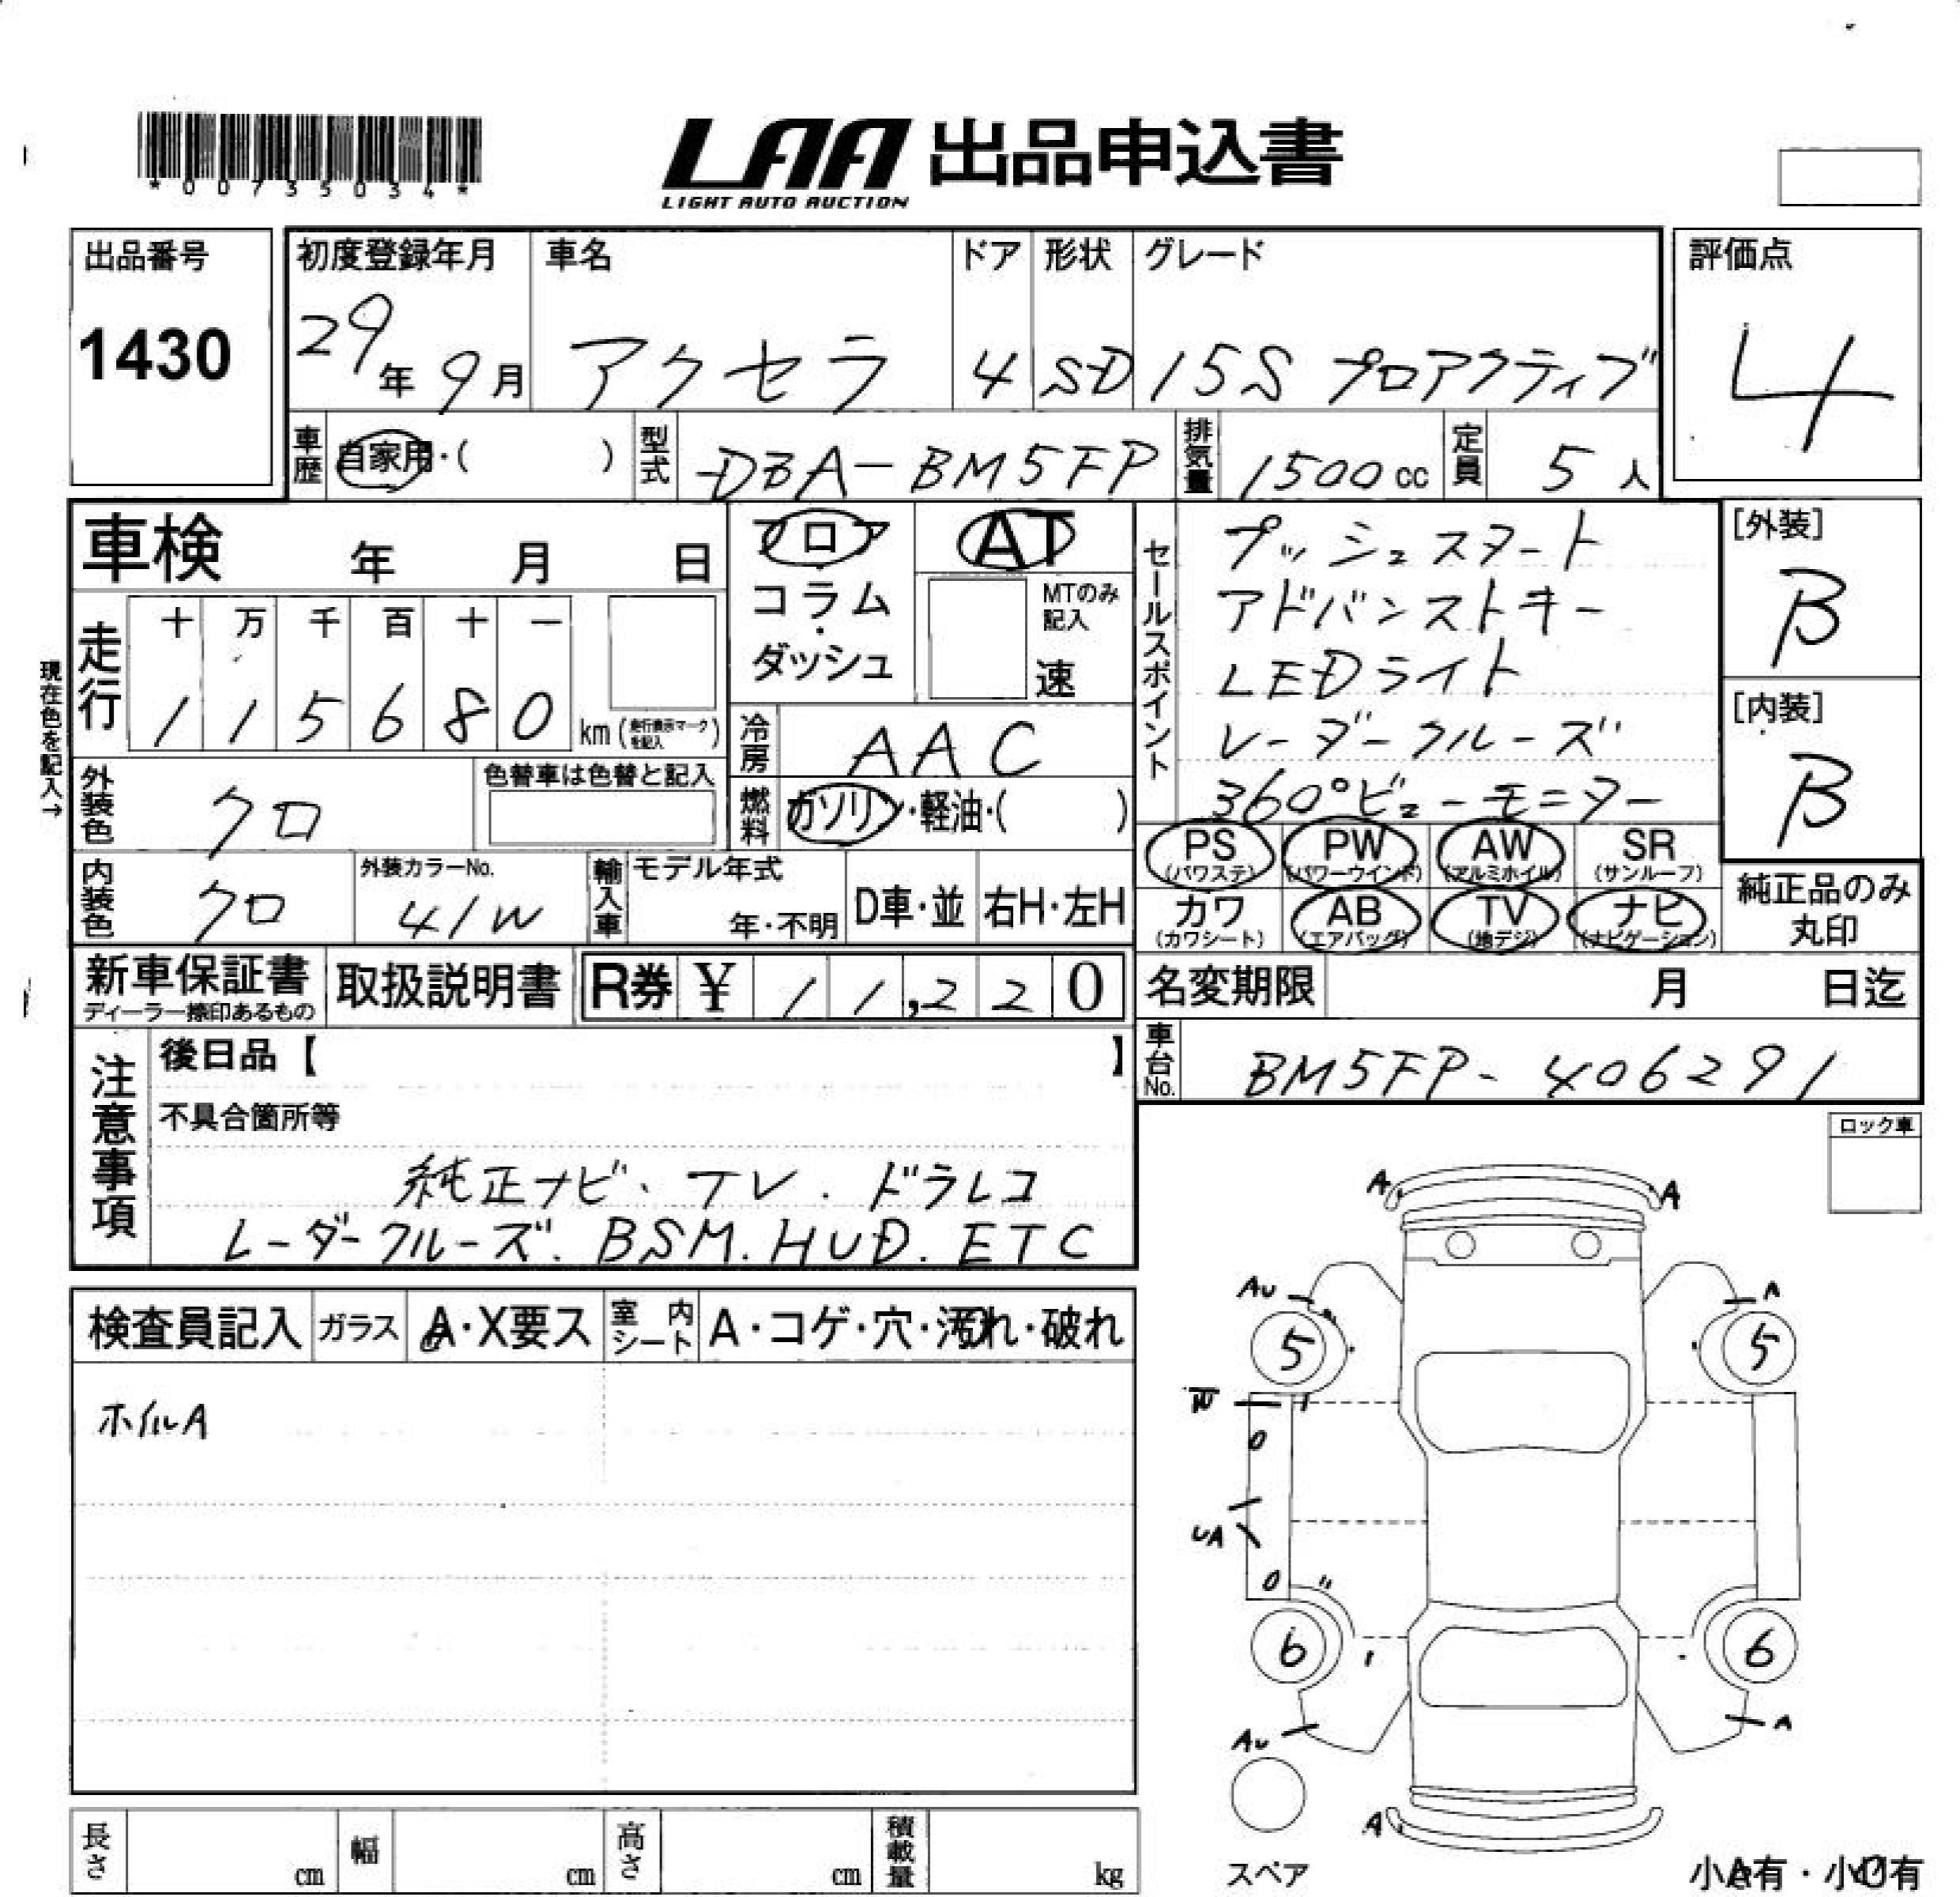 *00735034*
LAA 出品申込書
LIGHT AUTO AUCTION
出品番号
1430
初度登録年月
29年9月
車名
アクセラ
ドア
4
形状
SD
グレード
15S プロアクティブ
評価点
4
車歴 自家用・( )
型式 DBA-BM5FP
排気量 1500cc
定員 5人
車検 年 月 日
フロア
コラム・
ダッシュ
AT
MTのみ
記入
速
走行
十 万 千 百 十 一
1 1 5 6 8 0 km(走行表示マークを記入)
現在色を記入→
外装色 クロ
色替車は色替と記入
冷房 AAC
燃料 ガソリン・軽油・( )
内装色 クロ
外装カラーNo.
41W
輸入車
モデル年式
年・不明
D車・並
右H・左H
セールスポイント
プッシュスタート
アドバンストキー
LEDライト
レーダークルーズ
360°ビューモニター
[外装]
B
[内装]
B
PS
(パワステ)
PW
(パワーウインド)
AW
(アルミホイル)
SR
(サンルーフ)
カワ
(カワシート)
AB
(エアバッグ)
TV
(地デジ)
ナビ
(ナビゲーション)
純正品のみ
丸印
新車保証書
ディーラー捺印あるもの
取扱説明書
R券 ¥ 11,220
名変期限 月 日迄
車台No. BM5FP-406291
注意事項
後日品【 】
不具合箇所等
純正ナビ・TV・ドラレコ
レーダークルーズ.BSM.HUD.ETC
ロック車
検査員記入
ガラス
A・X要ス
室内シート
A・コゲ・穴・汚れ・破れ
ホイルA
A A
AU A
5 5
W
UA
6 6
AU A
A
スペア
小A有・小U有
長さ cm
幅 cm
高さ cm
積載量 kg